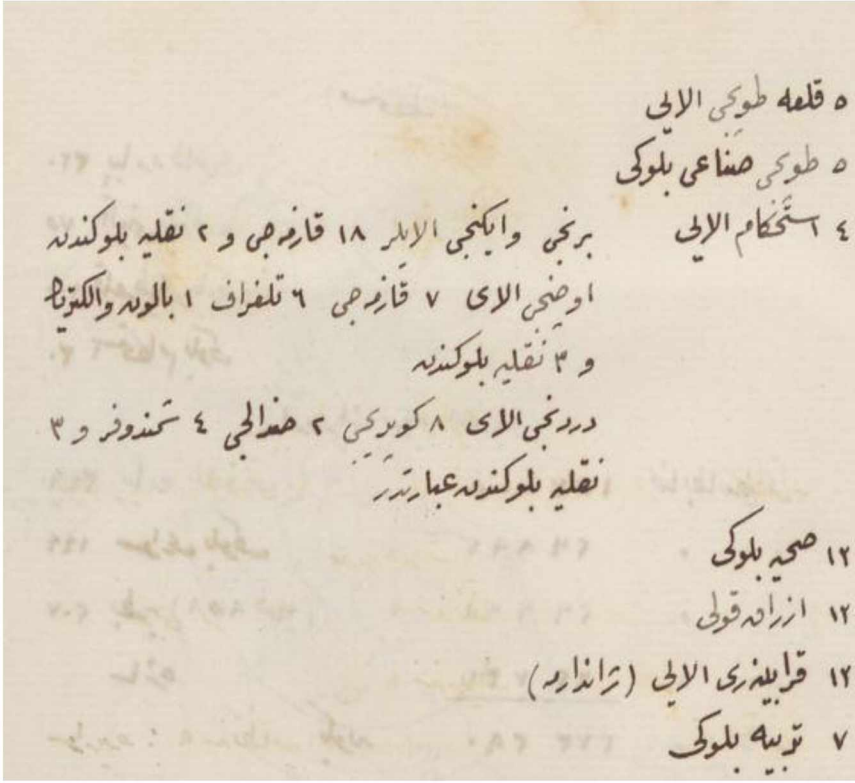 ٥ قلعه طوپجی الایی
٥ طوپجی صناعی بلوکی
٤ استحکام الایی برنجی و ایکنجی الایلر ١٨ قازمه‌جی و ٢ نقلیه بلوکندن
اوچنجی الای ٧ قازمه‌جی ٦ تلغراف ١ بالون والکتریك
و ٣ نقلیه بلوکندن
دردنجی الای ٨ کوپریجی ٢ صندالجی ٤ شمندوفر و ٣
نقلیه بلوکندن عبارتدر
١٢ صحیه بلوکی
١٢ ارزاق قولی
١٢ قرابینه‌ری الایی (ژاندارمه)
٧ تربیه بلوکی